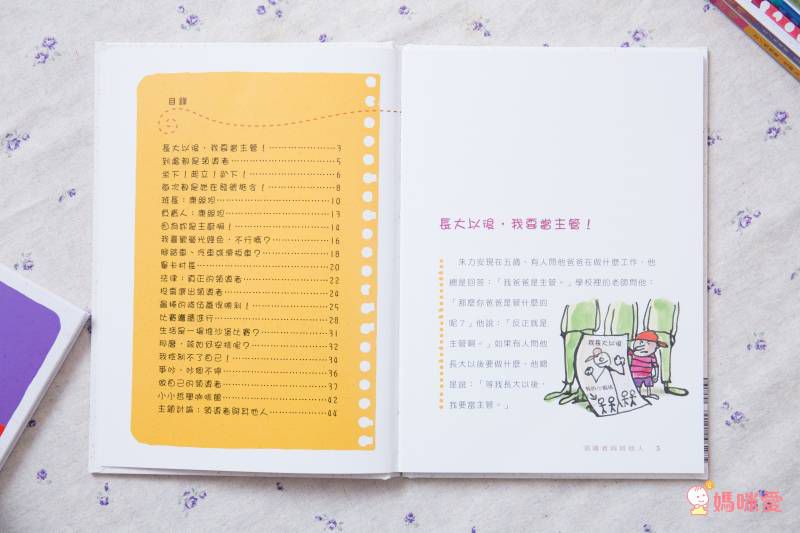 目錄
長大以後，我要當主管！ 3
到處都是領導者 5
坐下！起立！趴下！ 6
每次都是她在發號施令！ 8
班長：康德坦 10
負責人：康德坦 13
因為你是主廚啊！ 14
我喜歡螢光綠色，不行嗎？ 16
腳踏車、汽車或滑板車？ 18
畢卡村長 20
法律：真正的領導者 22
投票選出領導者 24
最棒的城伍贏得勝利！ 25
比賽繼續進行 28
生活是一場堆沙堡比賽？ 31
我控制不了自己！ 34
爭吵，吵個不停 36
做自己的領導者 37
小小哲學咖啡館 42
主題討論：領導者與其他人 44
長大以後，我要當主管！
朱力安現在五歲，有人問他爸爸在做什麼工作，他
總是回答：「我爸爸是主管。」學校裡的老師問他：
「那麼你爸爸是管什麼的
呢？」他說：「反正就是
主管啊。」如果有人問他
長大以後要做什麼，他總
是說：「等我長大以後，
我要當主管。」
我長大以後
領導者與其他人 3
媽咪愛